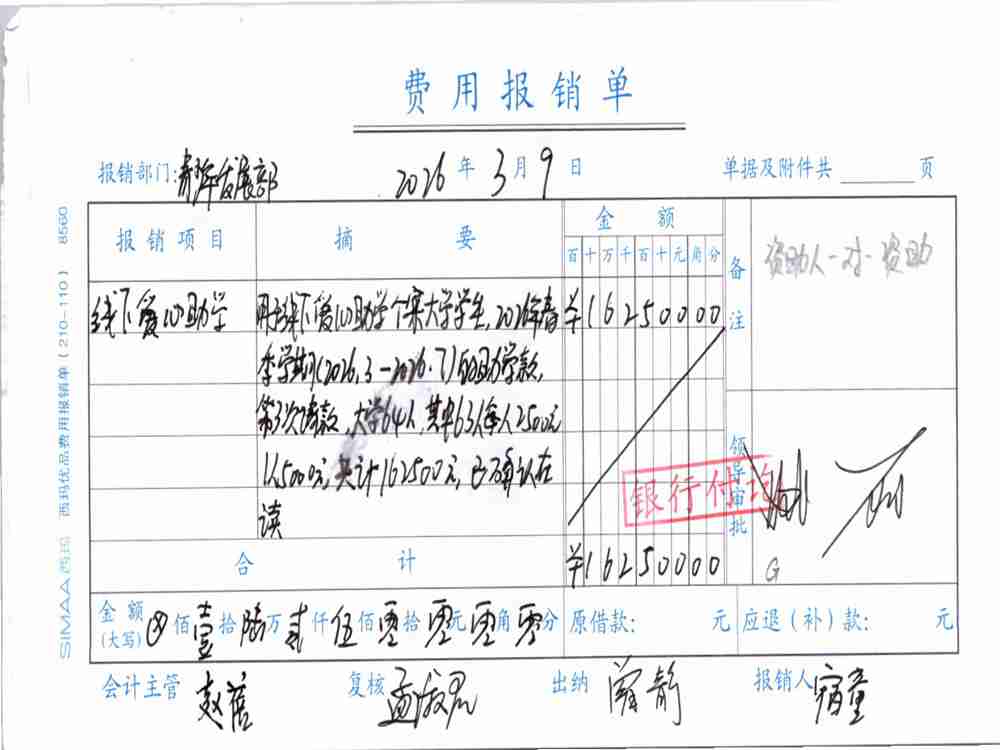 费用报销单
报销部门: 青年发展部 2026 年 3 月 9 日 单据及附件共 页
报销项目 摘要 金额 备注 资助人一对一资助
百 十 万 千 百 十 元 角 分
线下爱心助学 用于线下爱心助学个案大学学生,2026年春 ¥16250000
季学期(2026.3-2026.7)的助学款,
第3次请款,大学64人,其中63人每人2500元
1人5000元,共计162500元,已确认在
读
领导审批
银行付讫
合计 ¥16250000
G
金额(大写) ⊗ 佰 壹 拾 陆 万 贰 仟 伍 佰 零 拾 零 元 零 角 零 分 原借款: 元 应退(补)款: 元
会计主管 赵蓓 复核 孟淑君 出纳 阚静 报销人 宿童
SIMAA 西玛 西玛优品费用报销单(210-110) 8560